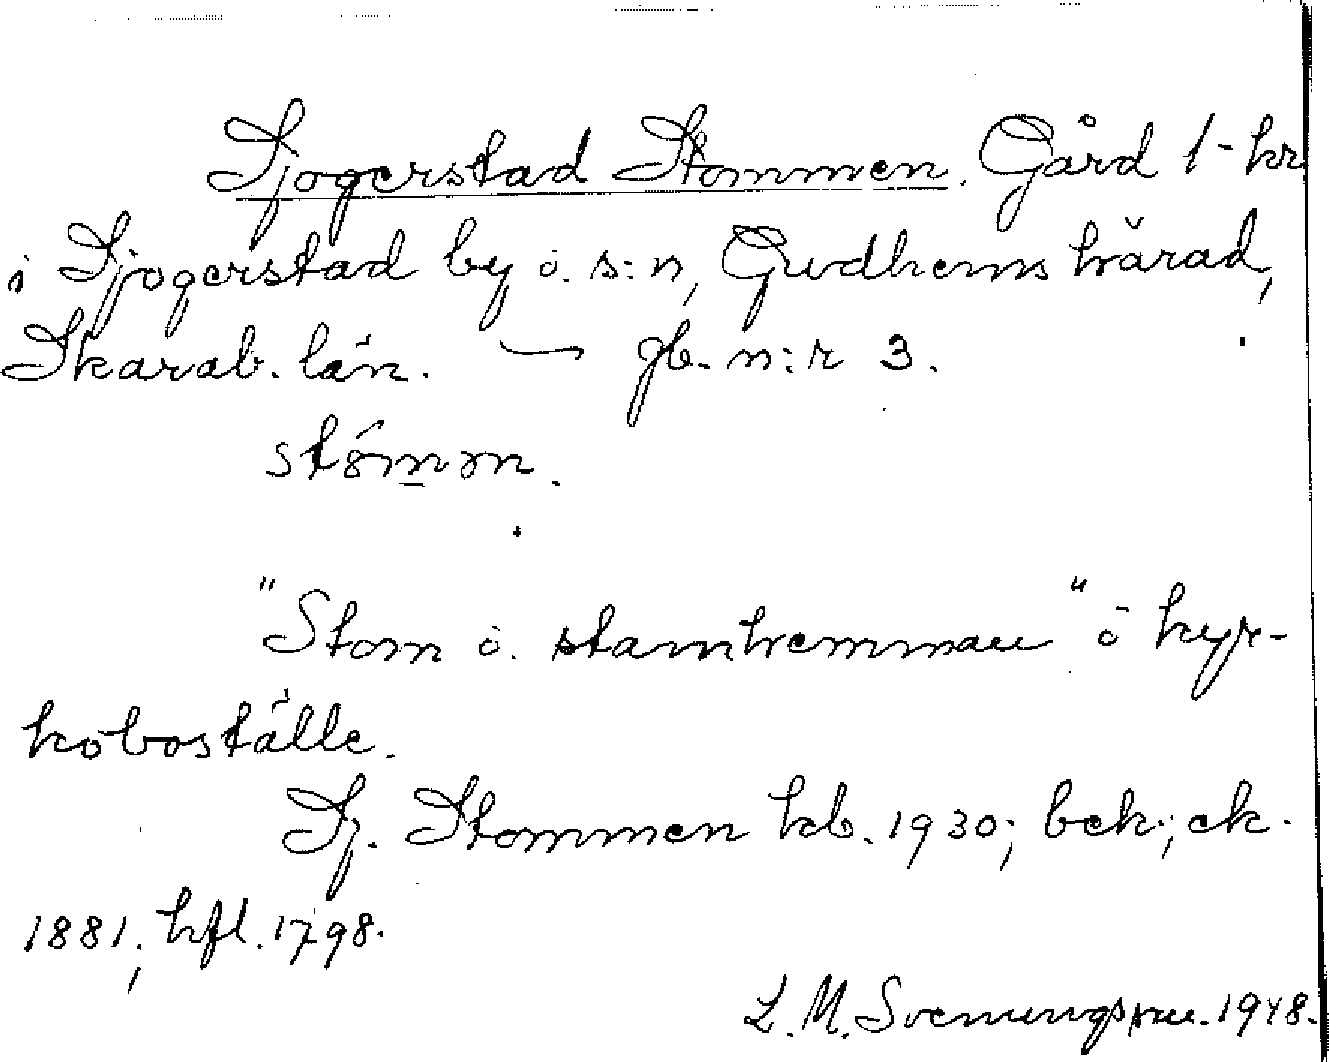 Sjogerstad Stommen. Gård 1-hn
i Sjogerstad by o. s:n, Gudhems härad,
Skarab. län. — gb. n:r 3.
stómɘn.
"Stom o. stamhemman" o kyr-
koboställe.
Sj. Stommen kb. 1930; bek.; ek.
1881; hfl. 1798.
L. M. Svenungsson. 1948.